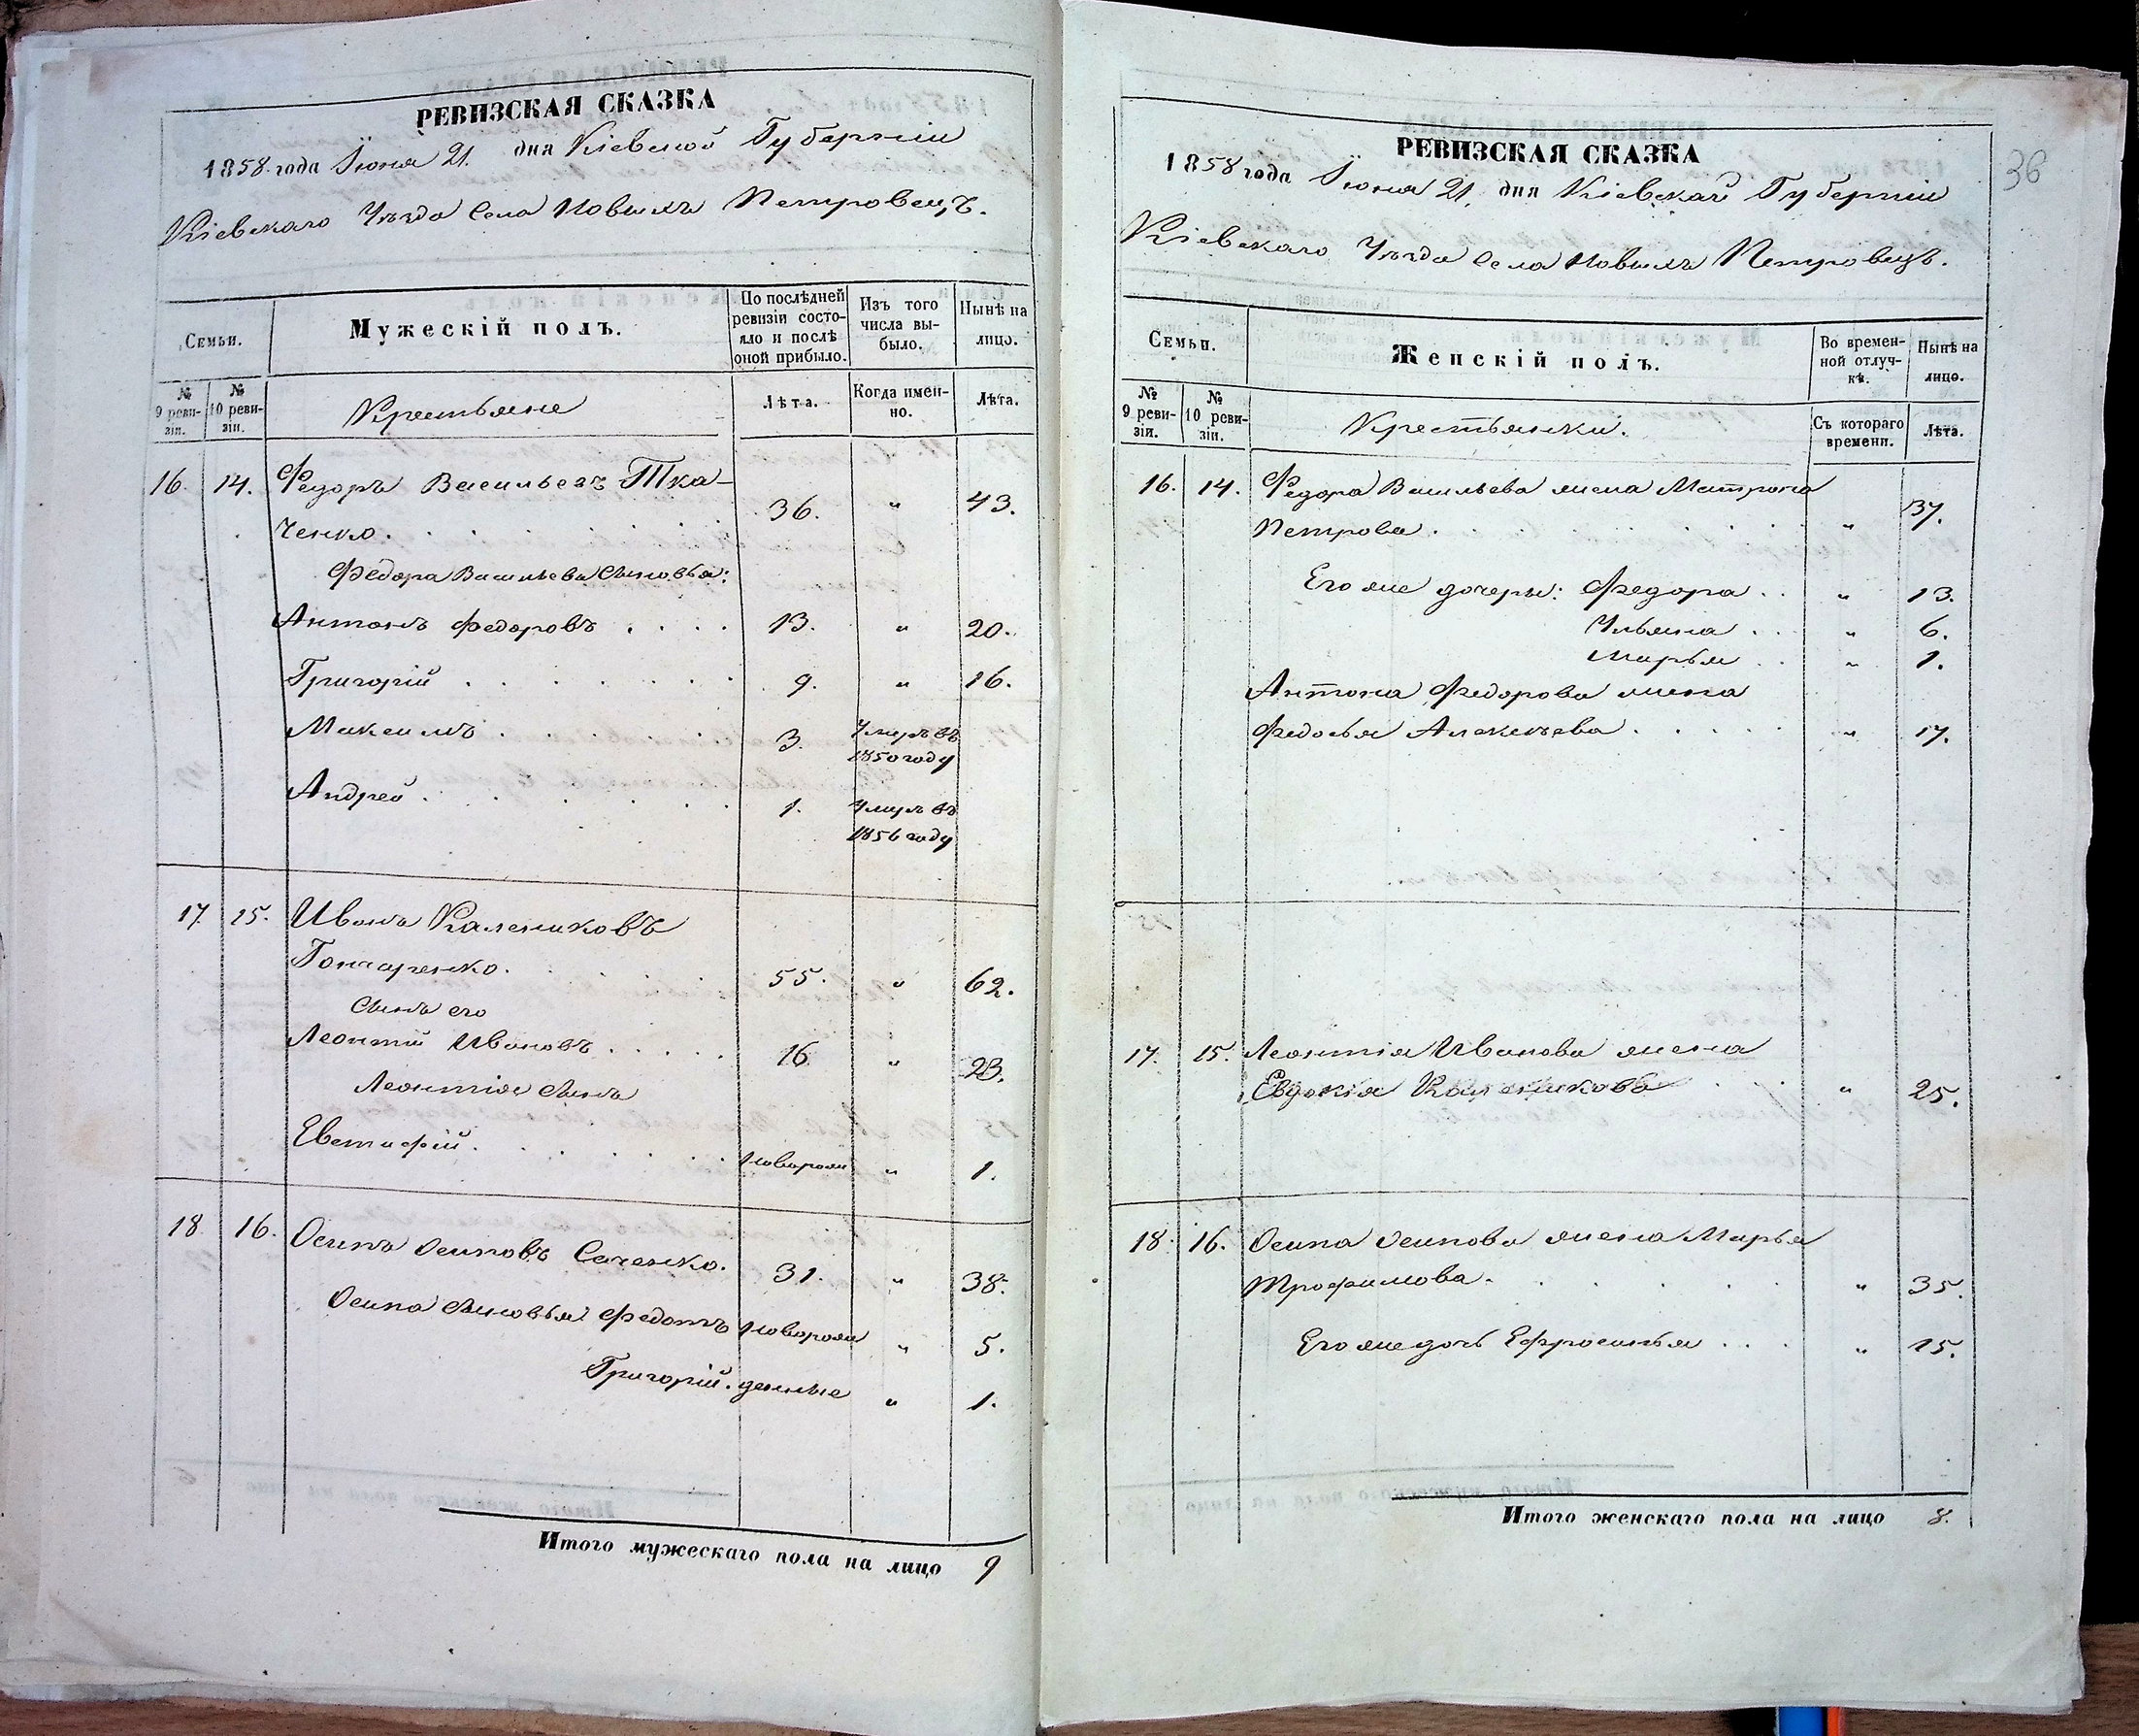 РЕВИЗСКАЯ СКАЗКА
1858 года Іюня 21. дня Кіевской Губерніи
Кіевскаго Уѣзда Села Новыхъ Петровецъ.
Семьи.
Мужескій полъ.
По послѣдней ревизіи состояло и послѣ оной прибыло.
Изъ того числа выбыло.
Нынѣ на лицо.
№ 9 ревизіи.
№ 10 ревизіи.
Крестьяне
Лѣта.
Когда именно.
Лѣта.
16. 14. Федоръ Васильевъ Тка-
ченко. 36. " 43.
Федора Васильева сыновья:
Антонъ Федоровъ . . . . 13. " 20.
Григорій . . . . . . . 9. " 16.
Максимъ . . . . . . 3. Умеръ въ
1850 году
Андрей . . . . . . 1. Умеръ въ
1856 году
17. 15. Иванъ Калениковъ
Гончаренко. . . . . 55. " 62.
Сынъ его
Леонтій Ивановъ . . . . . 16 " 23.
Леонтія сынъ
Евстафій . . . . . . . новорож " 1.
18. 16. Осипъ Осиповъ Саченко. 31. " 38.
Осипа сыновья Федотъ новорож " 5.
Григорій. денные " 1.
Итого мужескаго пола на лицо 9
36
РЕВИЗСКАЯ СКАЗКА
1858 года Іюня 21. дня Кіевской Губерніи
Кіевскаго Уѣзда Села Новыхъ Петровецъ.
Семьи.
Женскій полъ.
Во временной отлучкѣ.
Нынѣ на лицо.
№ 9 ревизіи.
№ 10 ревизіи.
Крестьянки.
Съ котораго времени.
Лѣта.
16. 14. Федора Васильева жена Матрона
Петрова . . . . . . . " 37.
Его же дочери: Федора . . " 13.
Ульяна . . . " 6.
Марья . . " 1.
Антона Федорова жена
Федосья Алексѣева . . . . . " 17.
17. 15. Леонтія Иванова жена
Евдокія . . " 25.
18. 16. Осипа Осипова жена Марья
Трофимова. . . . . . " 35.
Его же дочь Ефросинья . . . " 15.
Итого женскаго пола на лицо 8.